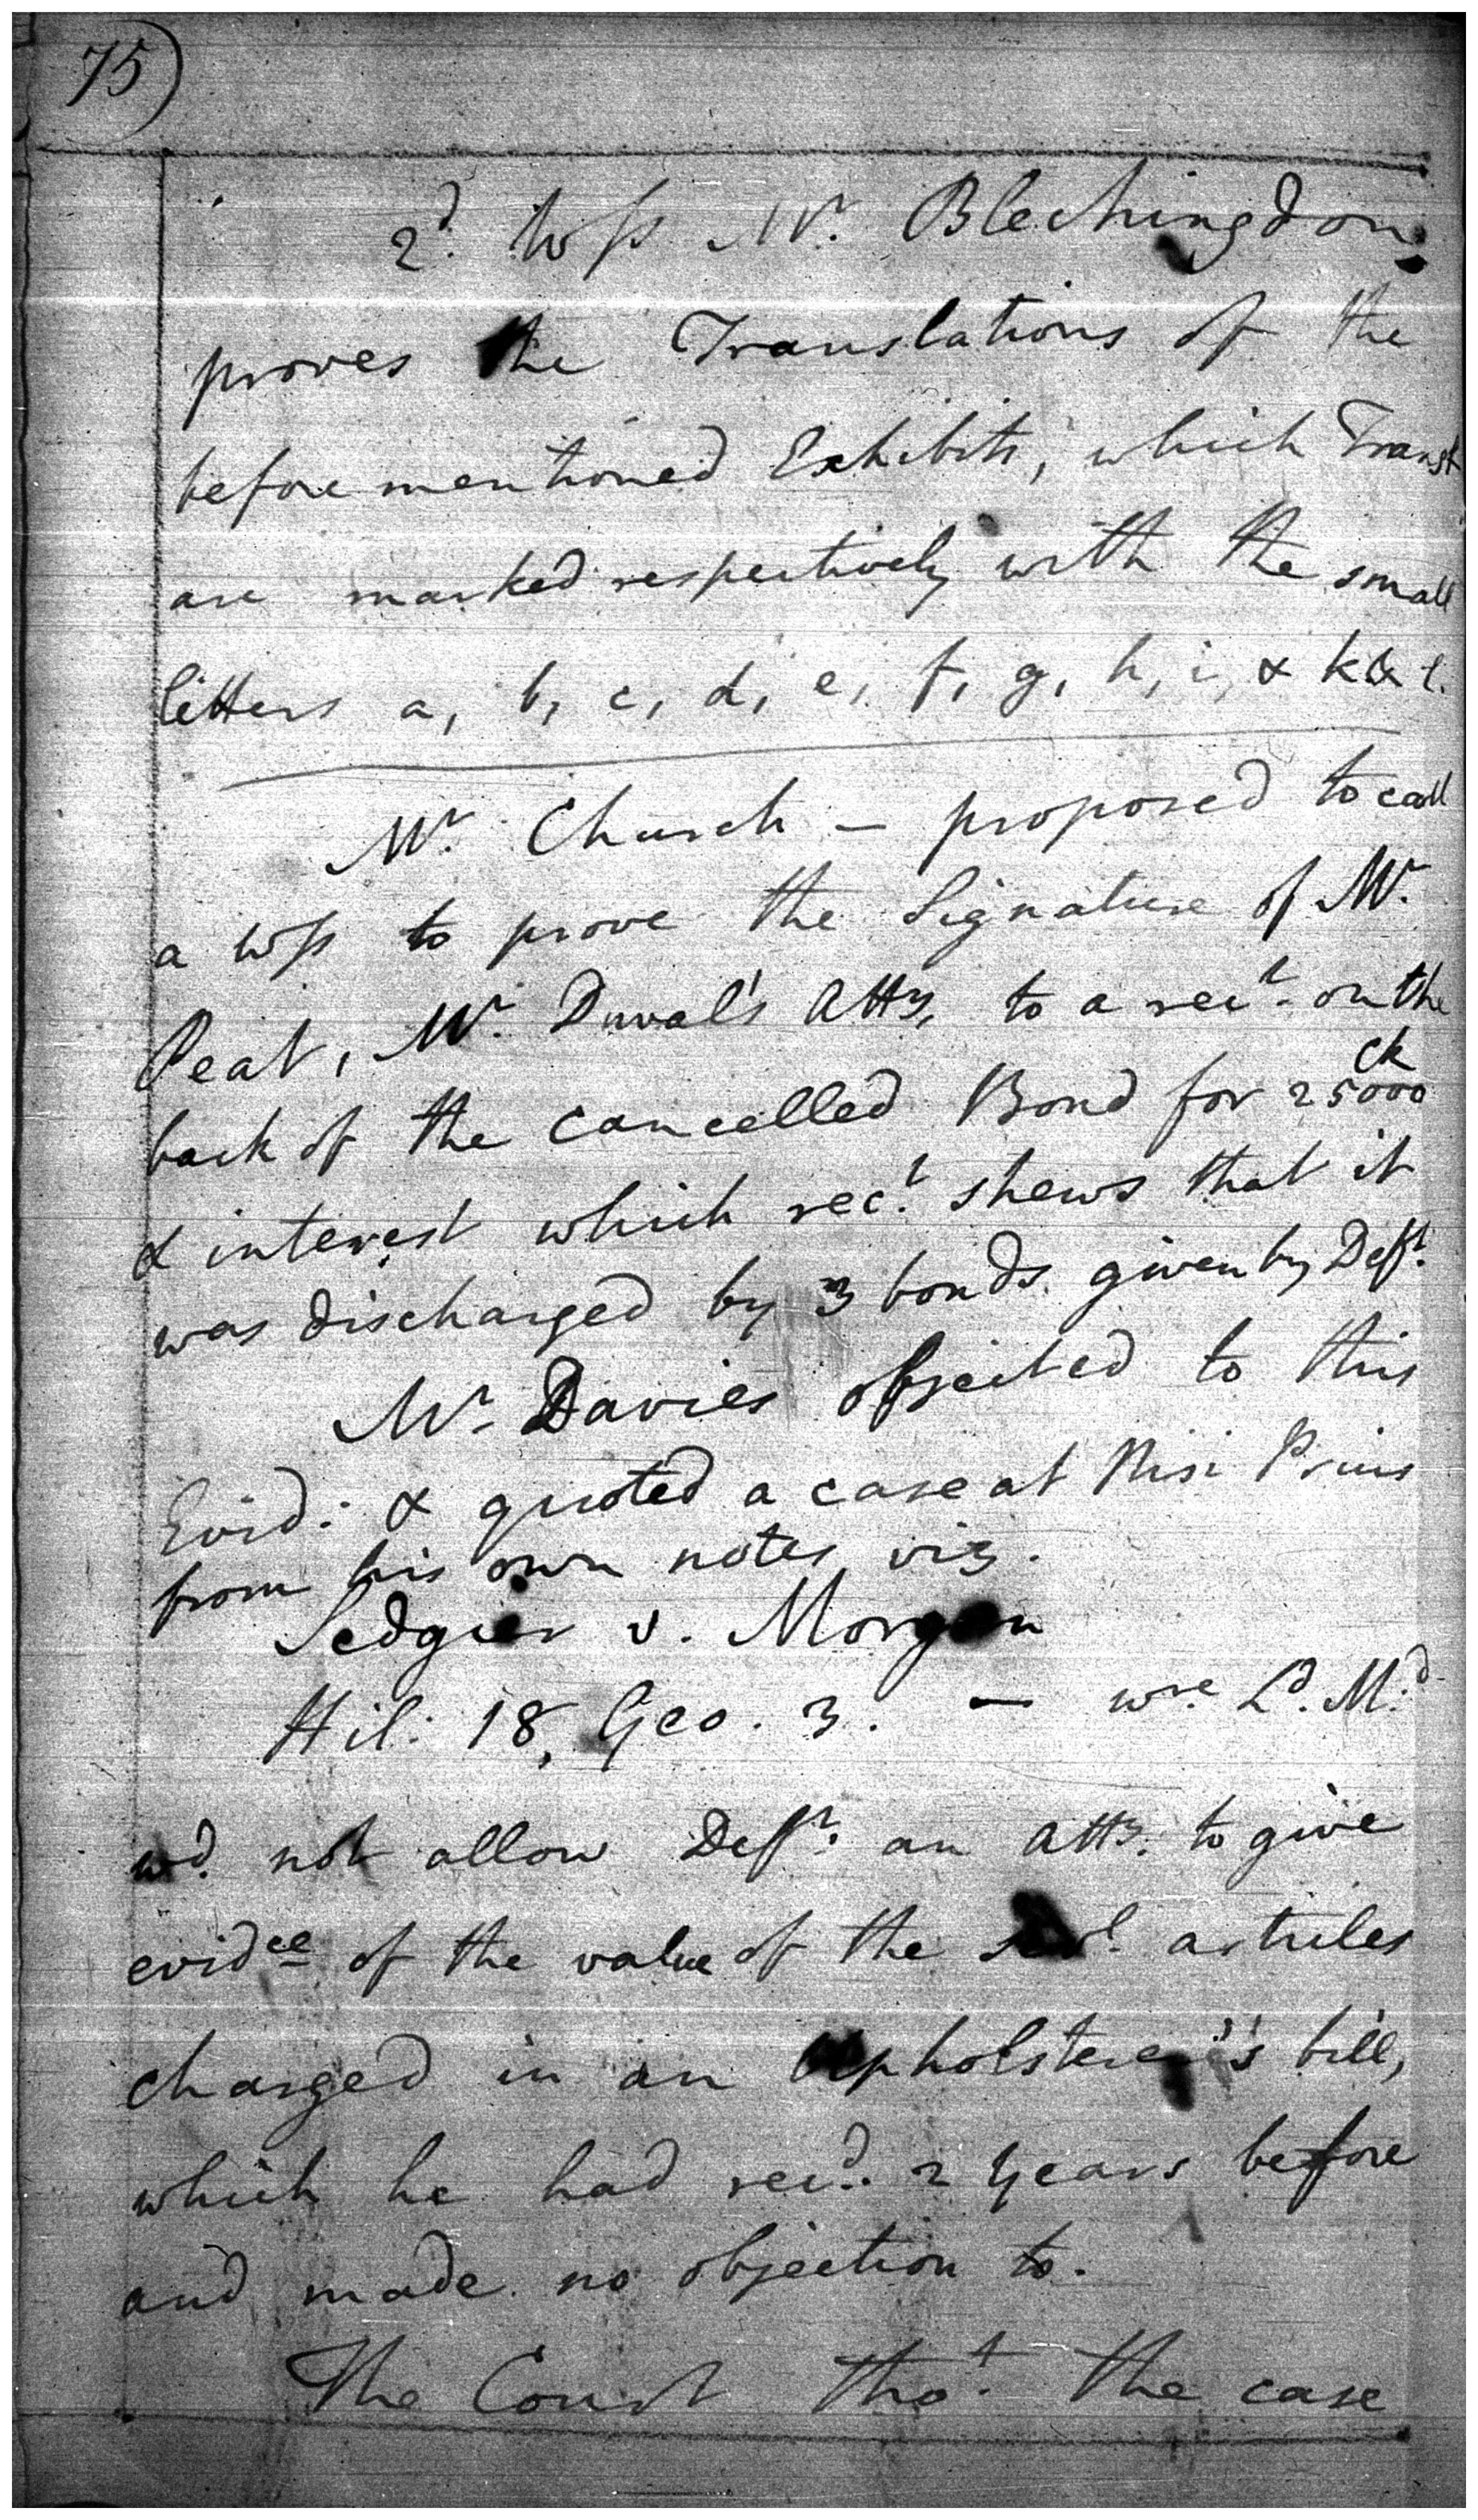 75)
2d. Wss Mr. Blechingdon
proves the Translations of the
before mentioned Exhibits, which Transl
are marked respectively with the small
letters a, b, c, d, e, f, g, h, i, & k & l.
Mr. Church — proposed to call
a wss to prove the Signature of Mr.
Peat, Mr. Duval's Atty, to a rect. on the
back of the cancelled Bond for 25000 ck
& interest which rect. shews that it
was discharged by 3 bonds given by Deft.
Mr. Davies objected to this
Evid: & quoted a case at Nisi Prius
from his own notes viz.
v. Morgan
Hil: 18, Geo. 3. — wre Ld. Md.
wd. not allow Deft. an Atty. to give
evidce of the value of the sevl. articles
charged in an Upholsterer's bill,
which he had recd. 2 years before
and made no objection to.
The Court thot. the case